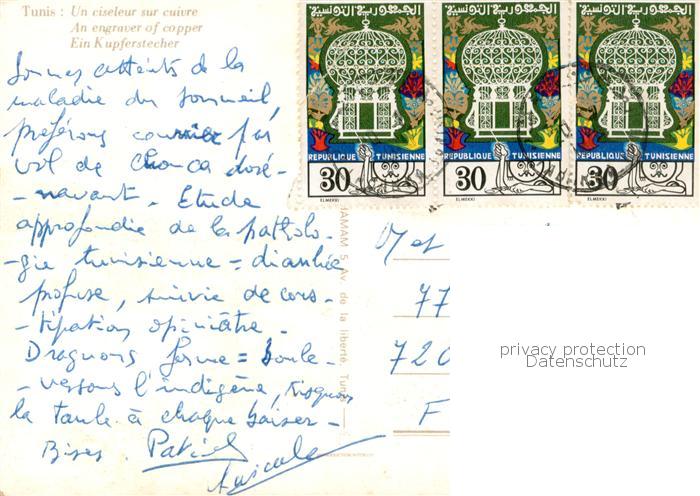 Tunis : Un ciseleur sur cuivre
An engraver of copper
Ein Kupferstecher
الجمهورية التونسية
الجمهورية التونسية
الجمهورية التونسية
REPUBLIQUE TUNISIENNE
REPUBLIQUE TUNISIENNE
REPUBLIQUE TUNISIENNE
30
30
30
ELMEKKI
ELMEKKI
ELMEKKI
Sommes atteints de la
maladie du sommeil,
préférons courrier par
vol de dosé-
-navant. Etude
approfondie de la patholo-
-gie tunisienne = diarrhée
profuse, suivie de cons-
-tipation opiniâtre.
Draguons ferme = boule-
-versons l'indigène, risquons
la taule à chaque baiser-
Bises. Patrick
HAMAM 5 Av. de la liberté Tunis
M et
77
720
F
privacy protection
Datenschutz